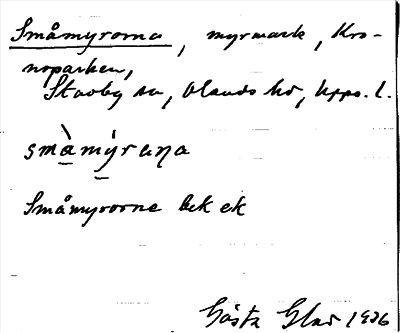 Småmyrorna, myrmark, Kro-
noparken,
Stavby sn, Olands hd, Upps. l.
smàmýruna
Småmyrorne bek ek
Gösta Glad 1936